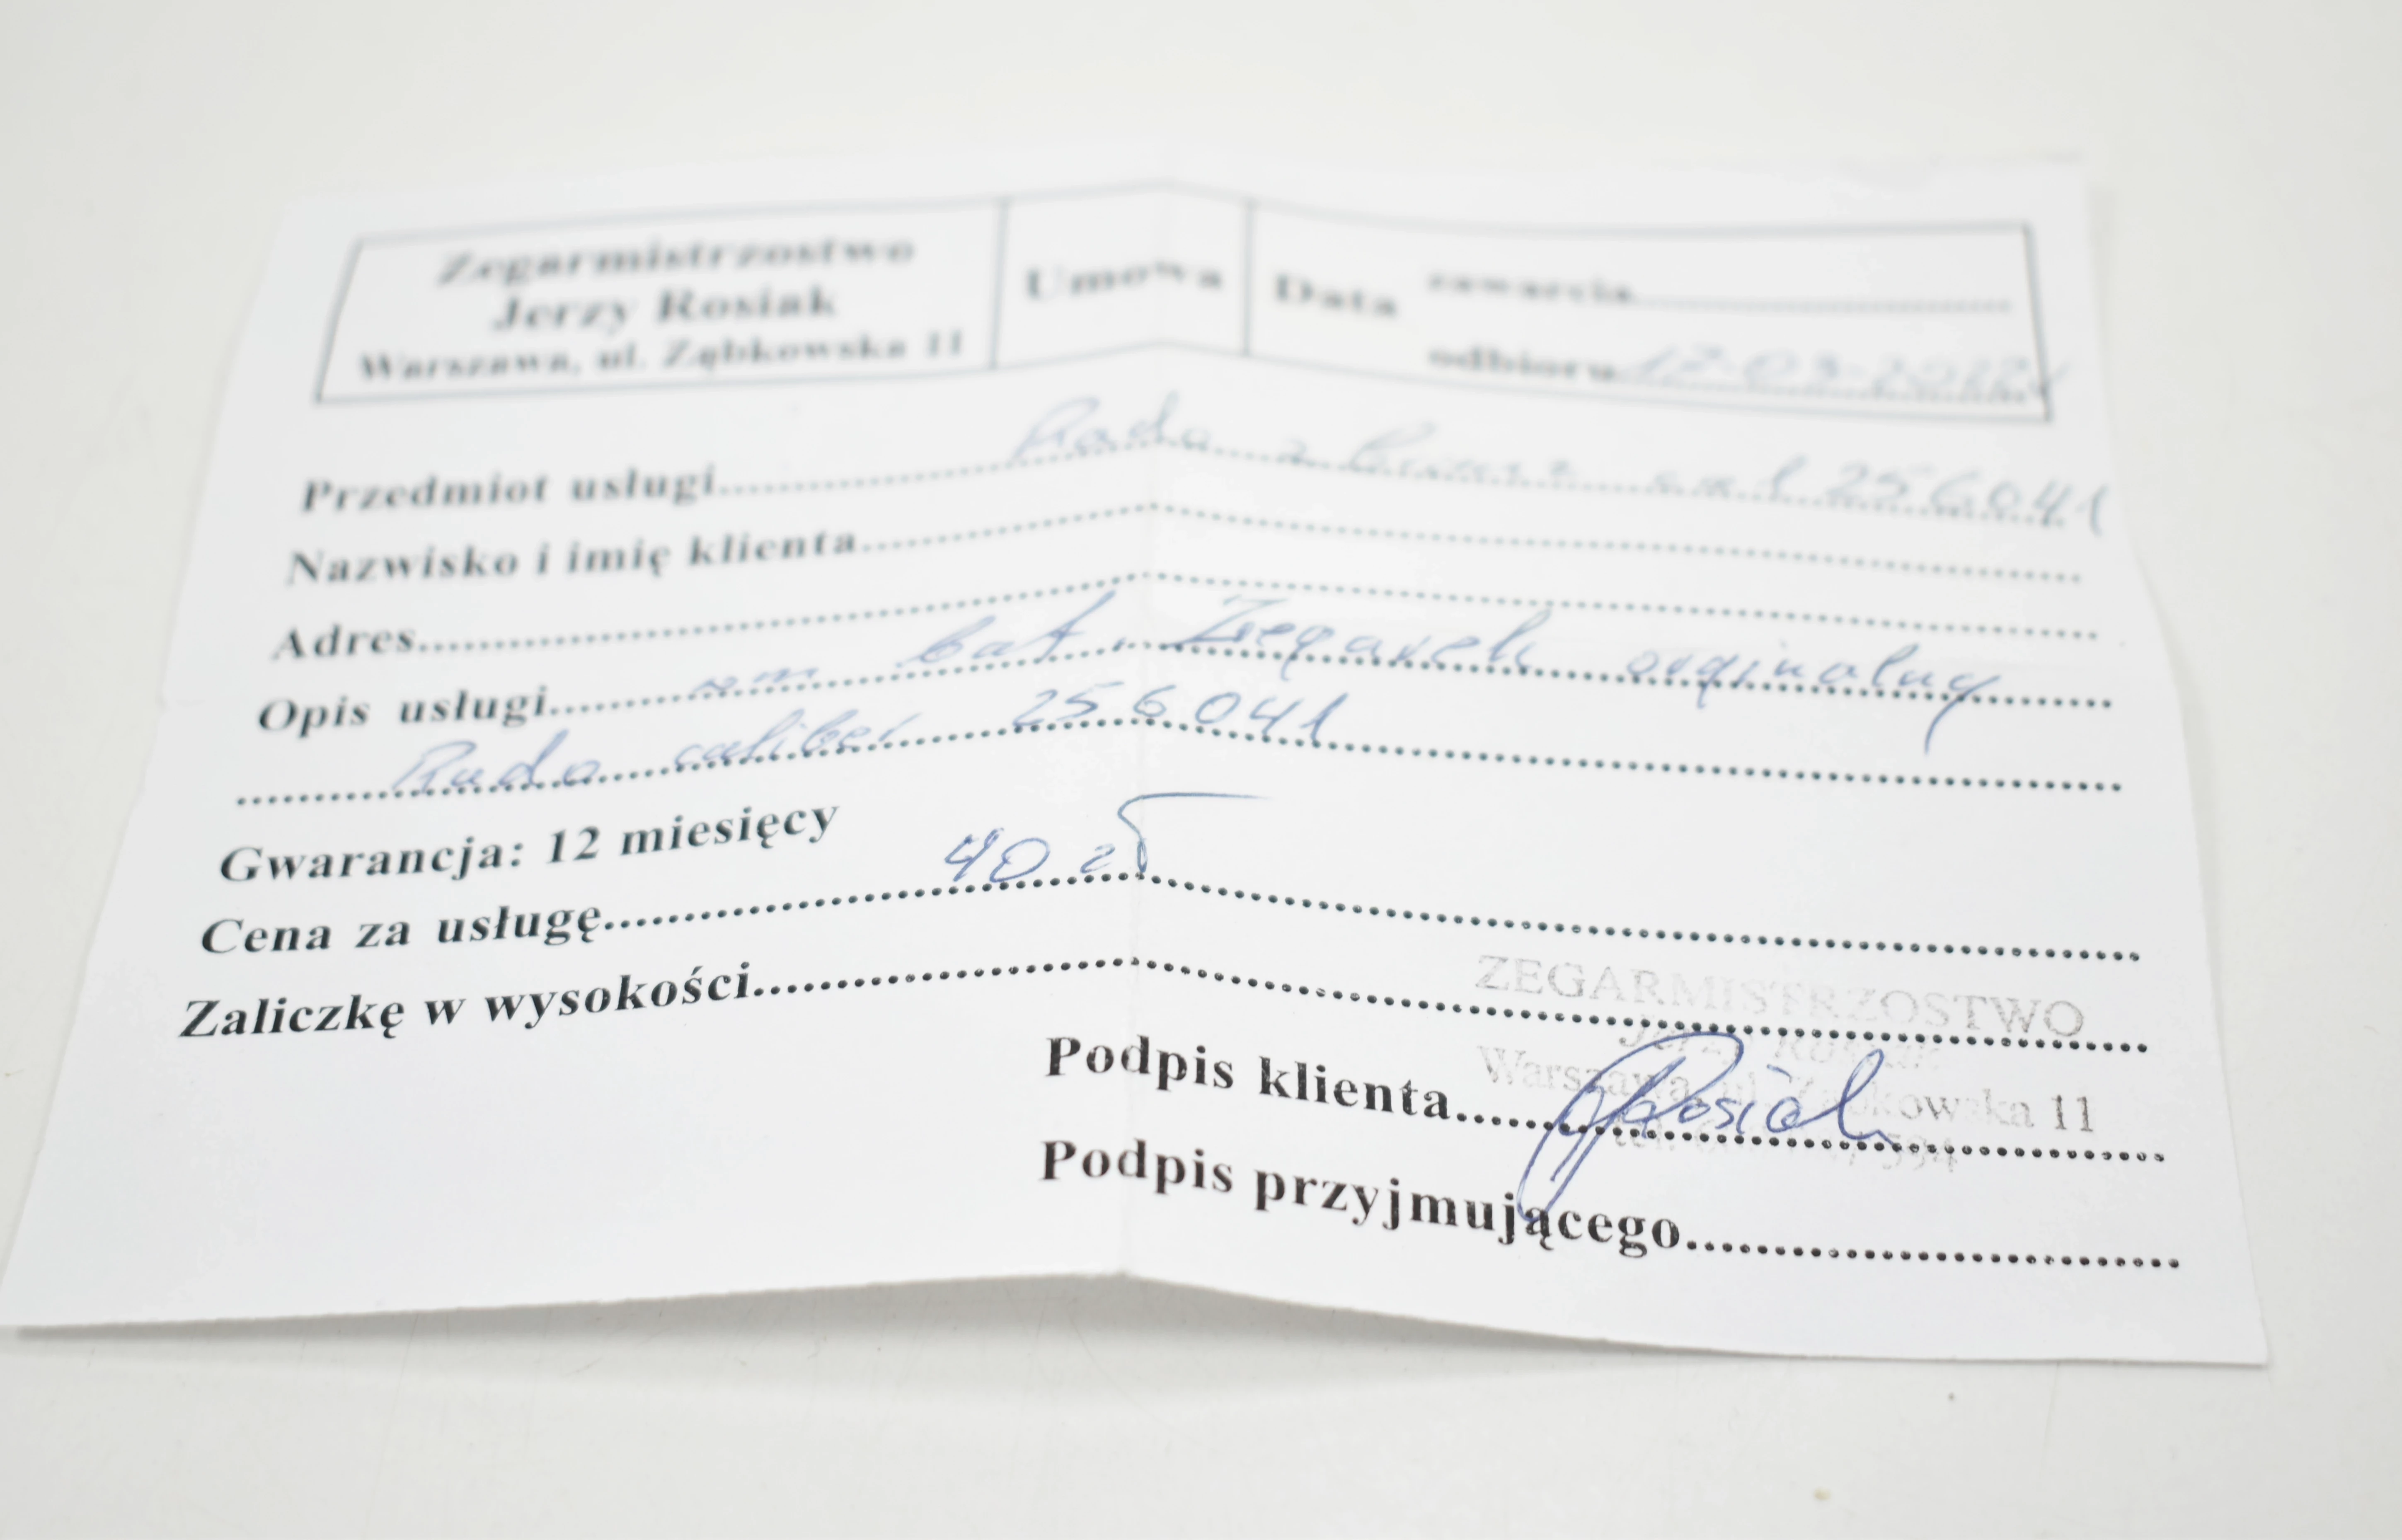 Zegarmistrzostwo
Jerzy Rosiak
Warszawa, ul. Ząbkowska 11
Umowa
Data
zawarcia
odbioru 17-03-2022
Przedmiot usługi Rado 256041
Nazwisko i imię klienta
Adres
Opis usługi wm bat. Zegarek orginalny
Rado caliber 256041
Gwarancja: 12 miesięcy
Cena za usługę 40 zł
Zaliczkę w wysokości
ZEGARMISTRZOSTWO
Jerzy Rosiak
Warszawa, ul. Ząbkowska 11
Podpis klienta Rosiak
Podpis przyjmującego